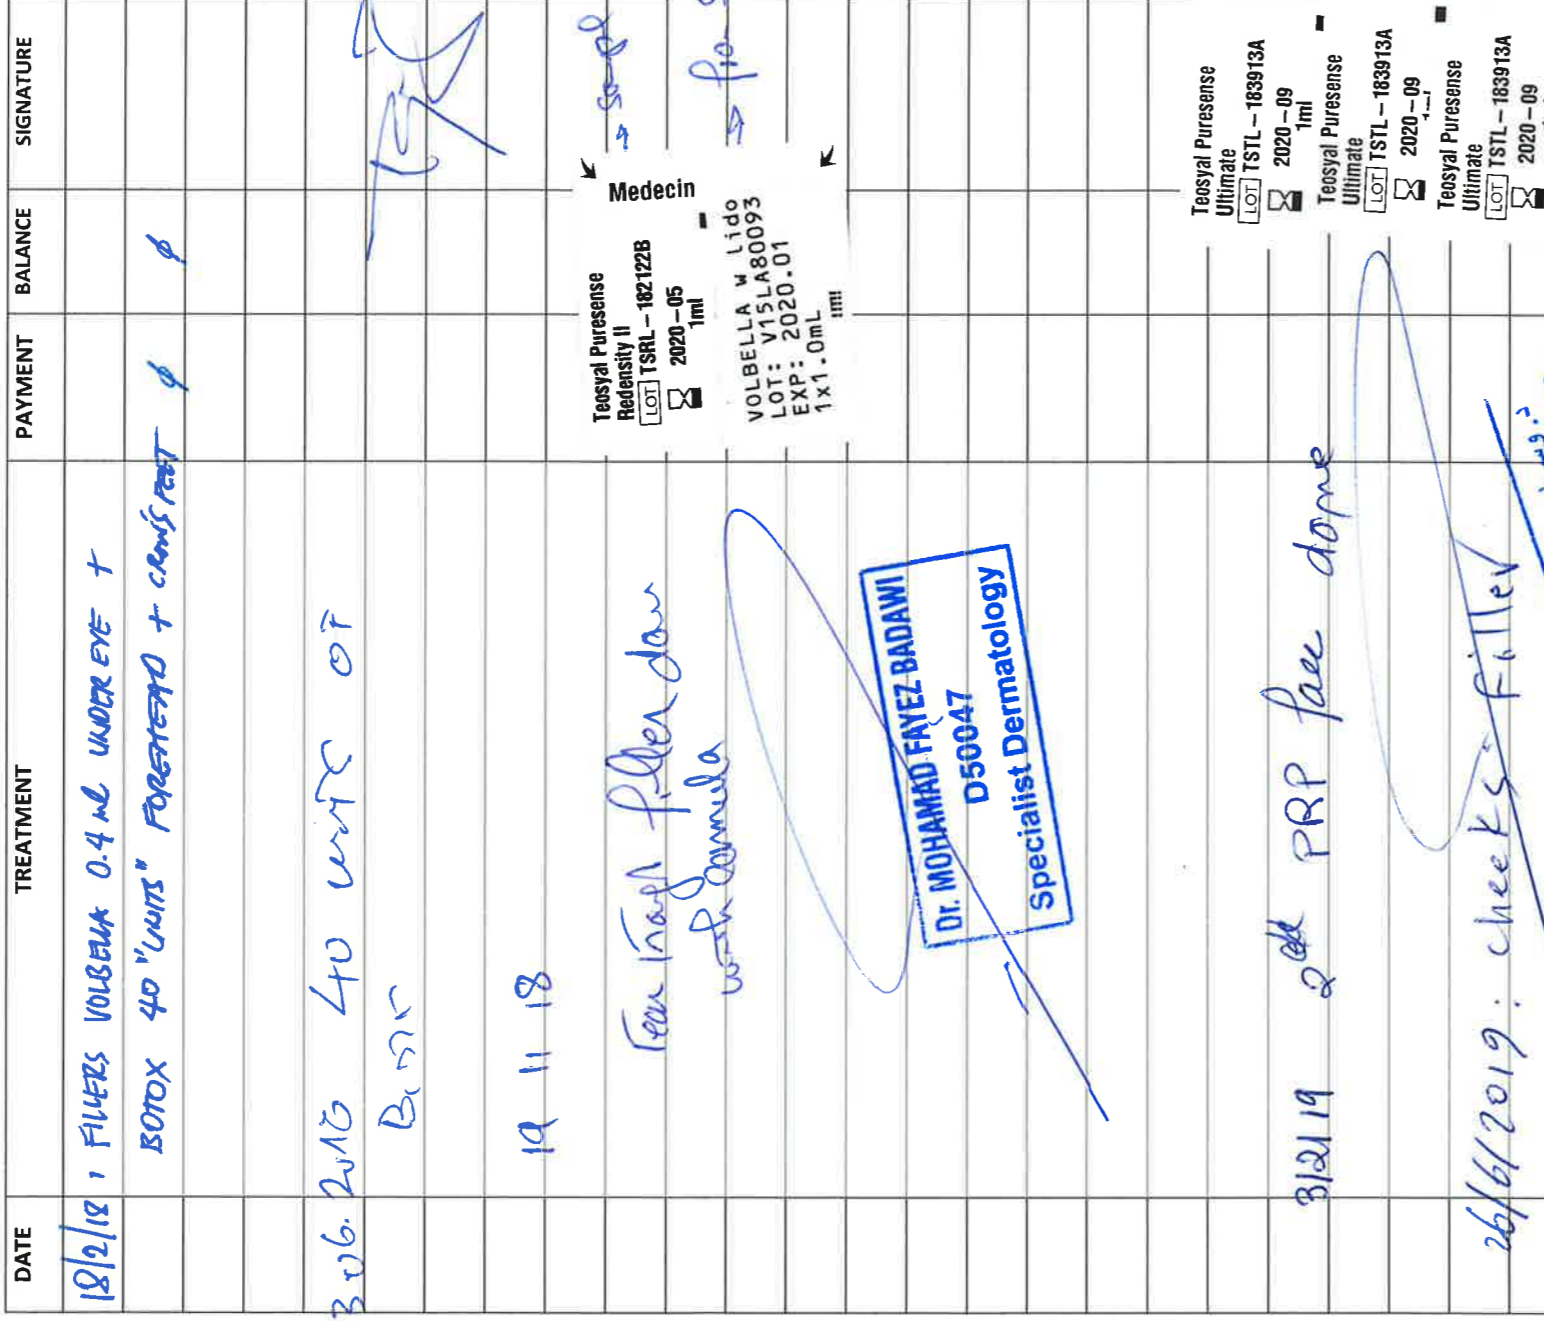 DATE TREATMENT PAYMENT BALANCE SIGNATURE
18/2/18 : FILLERS VOLBELLA 0.4 ml UNDER EYE +
BOTOX 40 "UNITS" FOREHEAD + CROW'S FEET ø ø
40 units of
19 11 18
Tear Trough filler done
with cannula
Teosyal Puresense
Redensity II
LOT TSRL-182122B
2020-05
1ml
Medecin
VOLBELLA W Lido
LOT: V15LA80093
EXP: 2020.01
1x1.0mL
Dr. MOHAMAD FAYEZ BADAWI
D50047
Specialist Dermatology
3/2/19 2nd PRP face done
26/6/2019: cheeks filler
Teosyal Puresense
Ultimate
LOT TSTL-183913A
2020-09
1ml
Teosyal Puresense
Ultimate
LOT TSTL-183913A
2020-09
Teosyal Puresense
Ultimate
LOT TSTL-183913A
2020-09